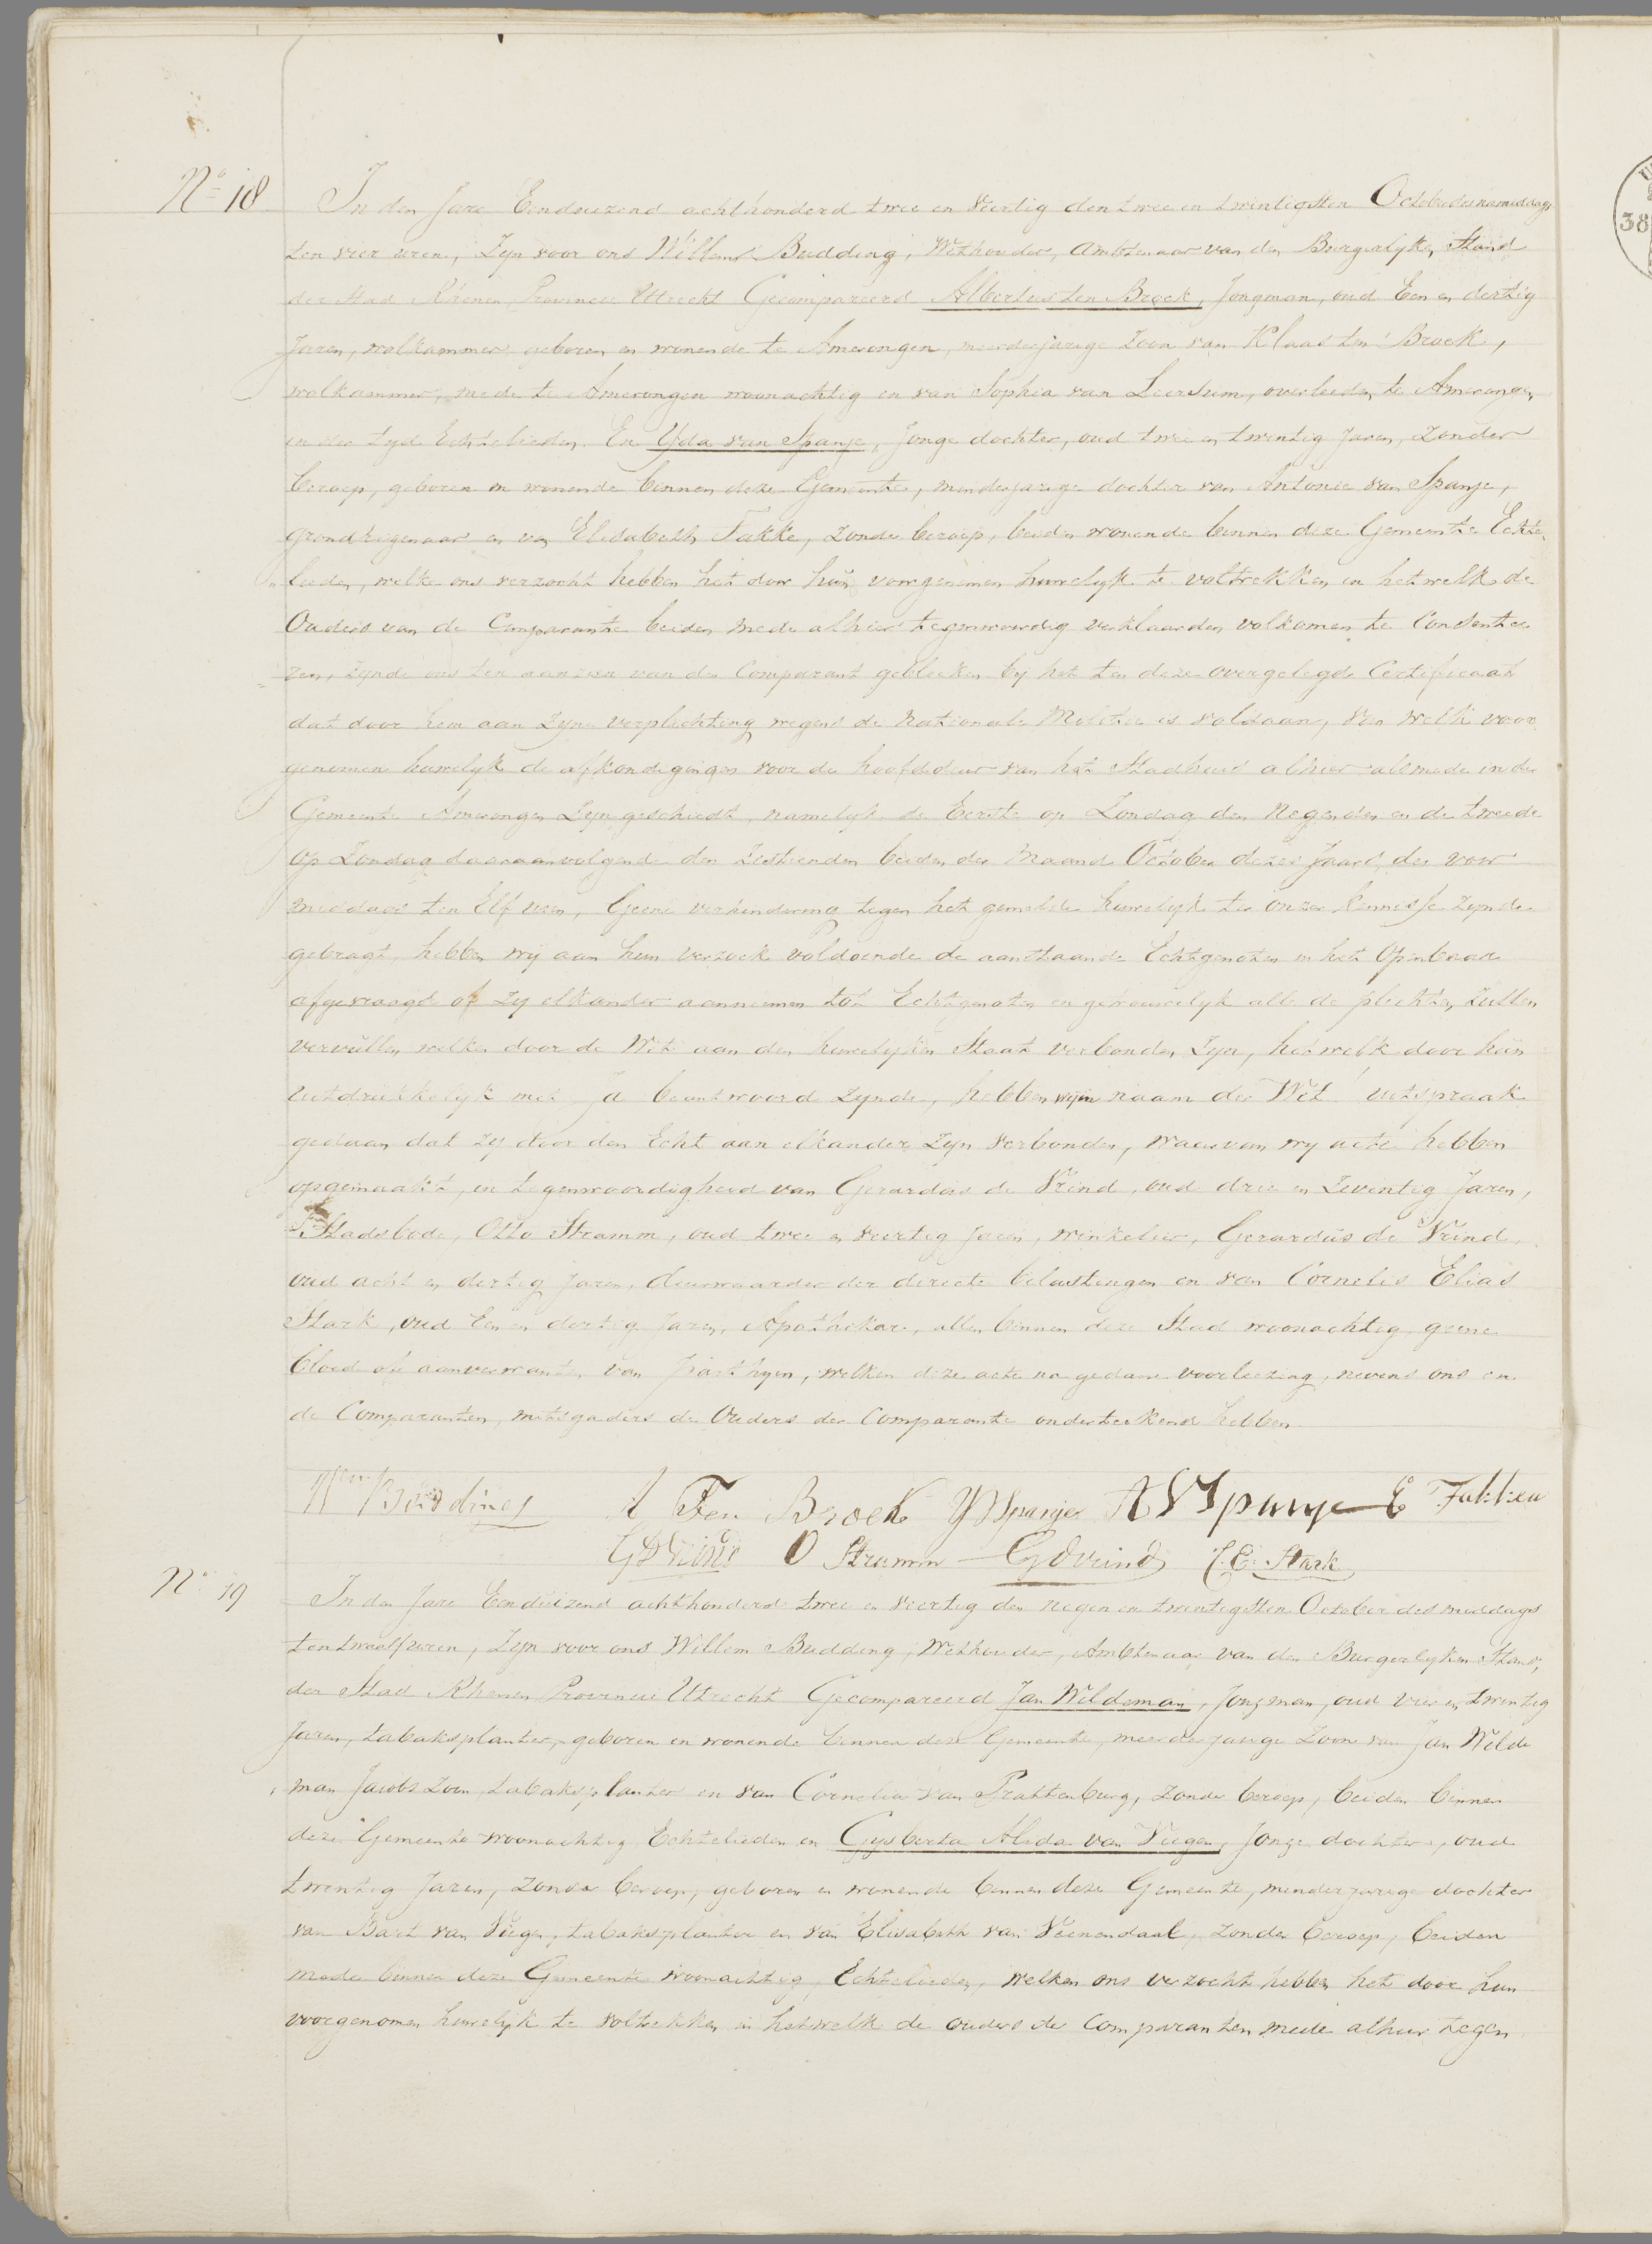 No 18
In den Jare Eenduizend achthonderd twee en Veertig den twee en twintigsten October des namiddags
ten vier uren, Zyn voor ons Willem Budding, Wethouder, Ambtenaar van den Burgerlyken Stand
der Stad Rhenen Provincie Utrecht Gecompareerd Albertus ten Broek, Jongman, oud Een en dertig
Jaren, wolkammer geboren en wonende te Amerongen, meerderjarige Zoon van Klaas ten Broek,
wolkammer, mede te Amerongen woonachtig en van Sophia van Leersum, overleeden te Amerongen,
in der tyd Echtelieden. En Yda van Spanje, Jonge dochter, oud twee en twintig Jaren, Zonder
beroep, geboren en wonende binnen deze Gemeente, minderjarige dochter van Antonie van Spanje,
grondeigenaar en van Elisabeth Fakke, Zonder beroep, beiden wonende binnen deze Gemeente Echte
lieden, welke ons verzocht hebben het door hun voorgenomen huwelyk te voltrekken in hetwelk de
Ouders van de Comparante beiden mede alhier tegenwoordig verklaarden volkomen te Consentee
ren, zynde ons ten aanzien van den Comparant gebleeken by het ten deze overgelegde Certificaat
dat door hem aan Zyne verplichting wegens de Nationale Militie is voldaan, van welk voor
genomen huwelyk de afkondigingen voor de hoofddeur van het Stadhuis alhier alsmede in de
Gemeente Amerongen Zyn geschiedt, namelyk de Eerste op Zondag den Negenden en de tweede
op Zondag daaraanvolgende den Zestienden beiden der Maand October dezes Jaars, des voor
middags ten Elf uren, Geene verhindering tegen het gemelde huwelyk ter onzer kennisse zynde
gebragt, hebben wy aan hun verzoek voldoende de aanstaande Echtgenoten in het Openbaar
afgevraagd of zy elkander aannemen tot Echtgenoten en getrouwelyk alle de plichten zullen
vervullen welke door de Wet aan den huwelyken Staat verbonden Zyn, het welk door hun
uitdrukkelyk met Ja beantwoord Zynde, hebben wy in naam der Wet uitspraak
gedaan dat zy door den Echt aan elkander Zyn verbonden, waarvan wy acte hebben
opgemaakt, in tegenwoordigheid van Gerardus de Vrind, oud drie en Zeventig Jaren,
Stadsbode, Otto Stramm, oud twee en veertig Jaren, winkelier, Gerardus de Vrind,
oud acht en dertig Jaren, deurwaarder der directe belastingen en van Cornelis Elias
Stark, oud Een en dertig Jaren, Apotheker, allen binnen deze Stad woonachtig geene
bloed of aanverwanten van parthyen, welken deze acte na gedane voorleezing, nevens ons en
de Comparanten, mitsgaders de Ouders der Comparante onderteekend hebben
Wm Budding A Ten Broek Y V Spanje A V Spanje E Fakken
G D Vrind O Stramm G D Vrind C. E. Stark
No 19
In den Jare Eenduizend achthonderd twee en veertig den negen en twintigsten October des middags
ten twaalf uren, Zyn voor ons Willem Budding, Wethouder, Ambtenaar van den Burgerlyken Stand,
der Stad Rhenen Provincie Utrecht Gecompareerd Jan Wildeman, Jongman, oud vier en twintig
Jaren, tabaksplanter, geboren en wonende binnen deze Gemeente, meerderjarige Zoon van Jan Wilde
man Jacobs Zoon, tabaksplanter en van Cornelia van Prattenburg, Zonder beroep, beiden binnen
deze Gemeente woonachtig Echtelieden en Gysberta Alida van Viegen, Jonge dochter, oud
twintig Jaren, Zonder beroep, geboren en wonende binnen deze Gemeente, minderjarige dochter
van Bart van Viegen, tabaksplanter en van Elisabeth van Veenendaal, Zonder beroep, beiden
mede binnen deze Gemeente woonachtig, Echtelieden, welken ons verzocht hebben het door hun
voorgenomen huwelyk te voltrekken in hetwelk de ouders der Comparanten mede alhier tegen
38